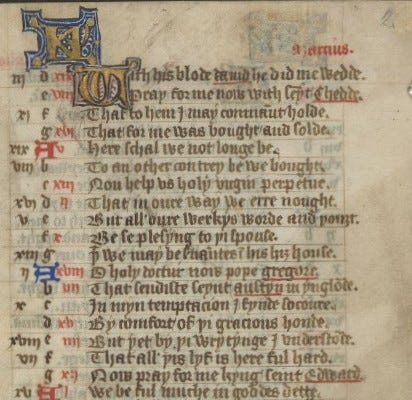 2
KL Marcius.
iij d xvij With his blode tavid he did me wedde.
e vi Pray for me now with seynt Chedde.
xi f That to hem I may connaut holde.
g xvi That for me was bought and solde.
xix A v Here schal we not longe be.
viij b To an other contrey be we bought.
c xvij Nou help vs holy virgin perpetue.
xvi d A That in oure way we erre nought.
v e But all oure werkys worde and
f x Be se plesyng to þi spouse.
xiij g þt we may be his house.
ij A xviij O holy doctur now pope gregore.
b vij That sendiste seynt austyn in ynglode.
x c In myn temptacion I fynde socoure.
d xv By comfort of þi gracious honde.
xviij e iiij But yet by þi wrytynge I vnderstode.
vij f That all þis lyf is here ful hard.
g xij Now pray for me kyng seint Edward.
xv A i we be ful muche in goddes dette.